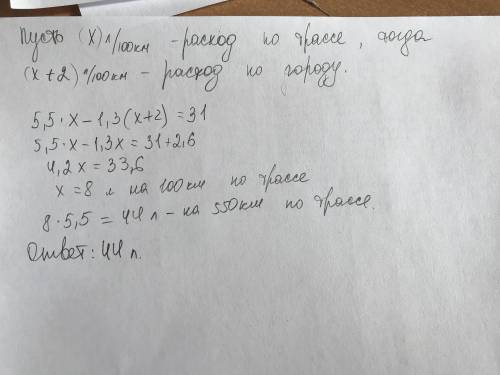 Пусть (x) л/100км - расход по трассе, тогда
(x+2) л/100км - расход по городу.
5,5·x-1,3(x+2)=31
5,5·x-1,3x=31+2,6
4,2x=33,6
x=8 л на 100км по трассе
8·5,5=44л-на 550км по трассе.
Ответ: 44 л.